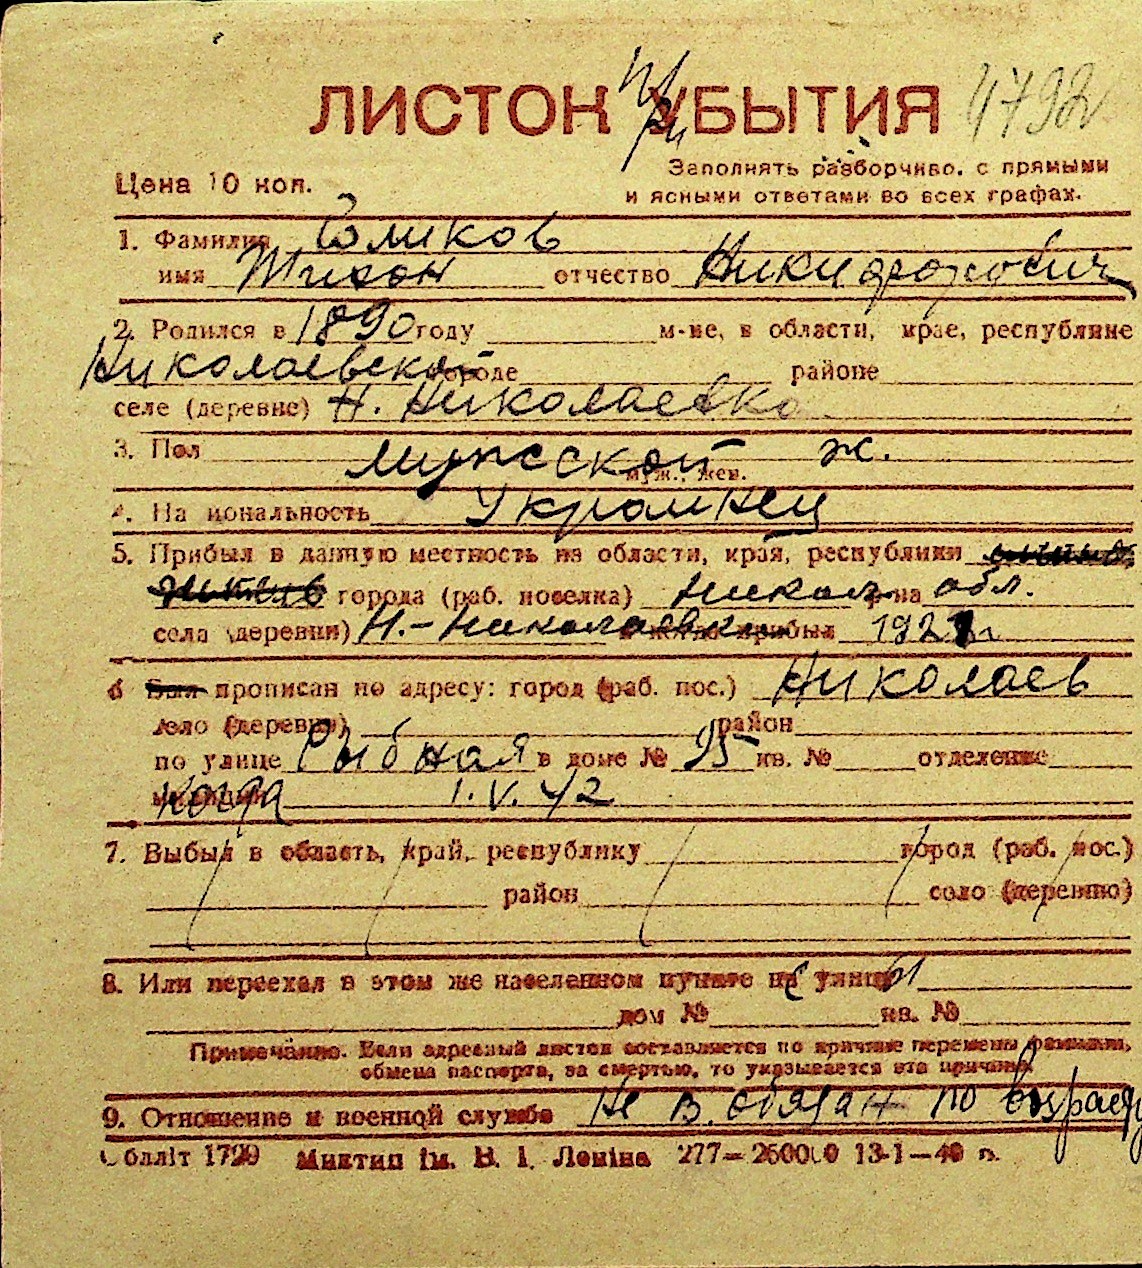 ЛИСТОК УБЫТИЯ
при
4792
Цена 10 коп.
Заполнять разборчиво, с прямыми
и ясными ответами во всех графах.
1. Фамилия Голиков
имя Тихон отчество Никифорович
2. Родился в 1890 году м-не, в области, крае, республике
Николаевской городе районе
селе (деревне) Н. Николаевка
3. Пол мужской ж.
муж., жен.
4. Национальность Украинец
5. Прибыл в данную местность из области, края, республики
города (раб. поселка) Никол. р-на обл.
села (деревни) Н.-Николаевки прибыл 1921 г
6 Был прописан по адресу: город (раб. пос.) Николаев
село (деревня) район
по улице Рыбная в доме № 95 кв. № отделение
когда 1.V.42
7. Выбыл в область, край, республику город (раб. пос.)
район соло (деревню)
8. Или переехал в этом же населенном пункте с улицы
дом № кв. №
Примечание. Если адресный листок составляется по причине перемены фамилии,
обмена паспорта, за смертью, то указывается эта причина.
9. Отношение к военной службе Не в. обязан по возрасту
Облліт 1729 Миктип ім. В. І. Леніна 277—260000 13-1—40 г.